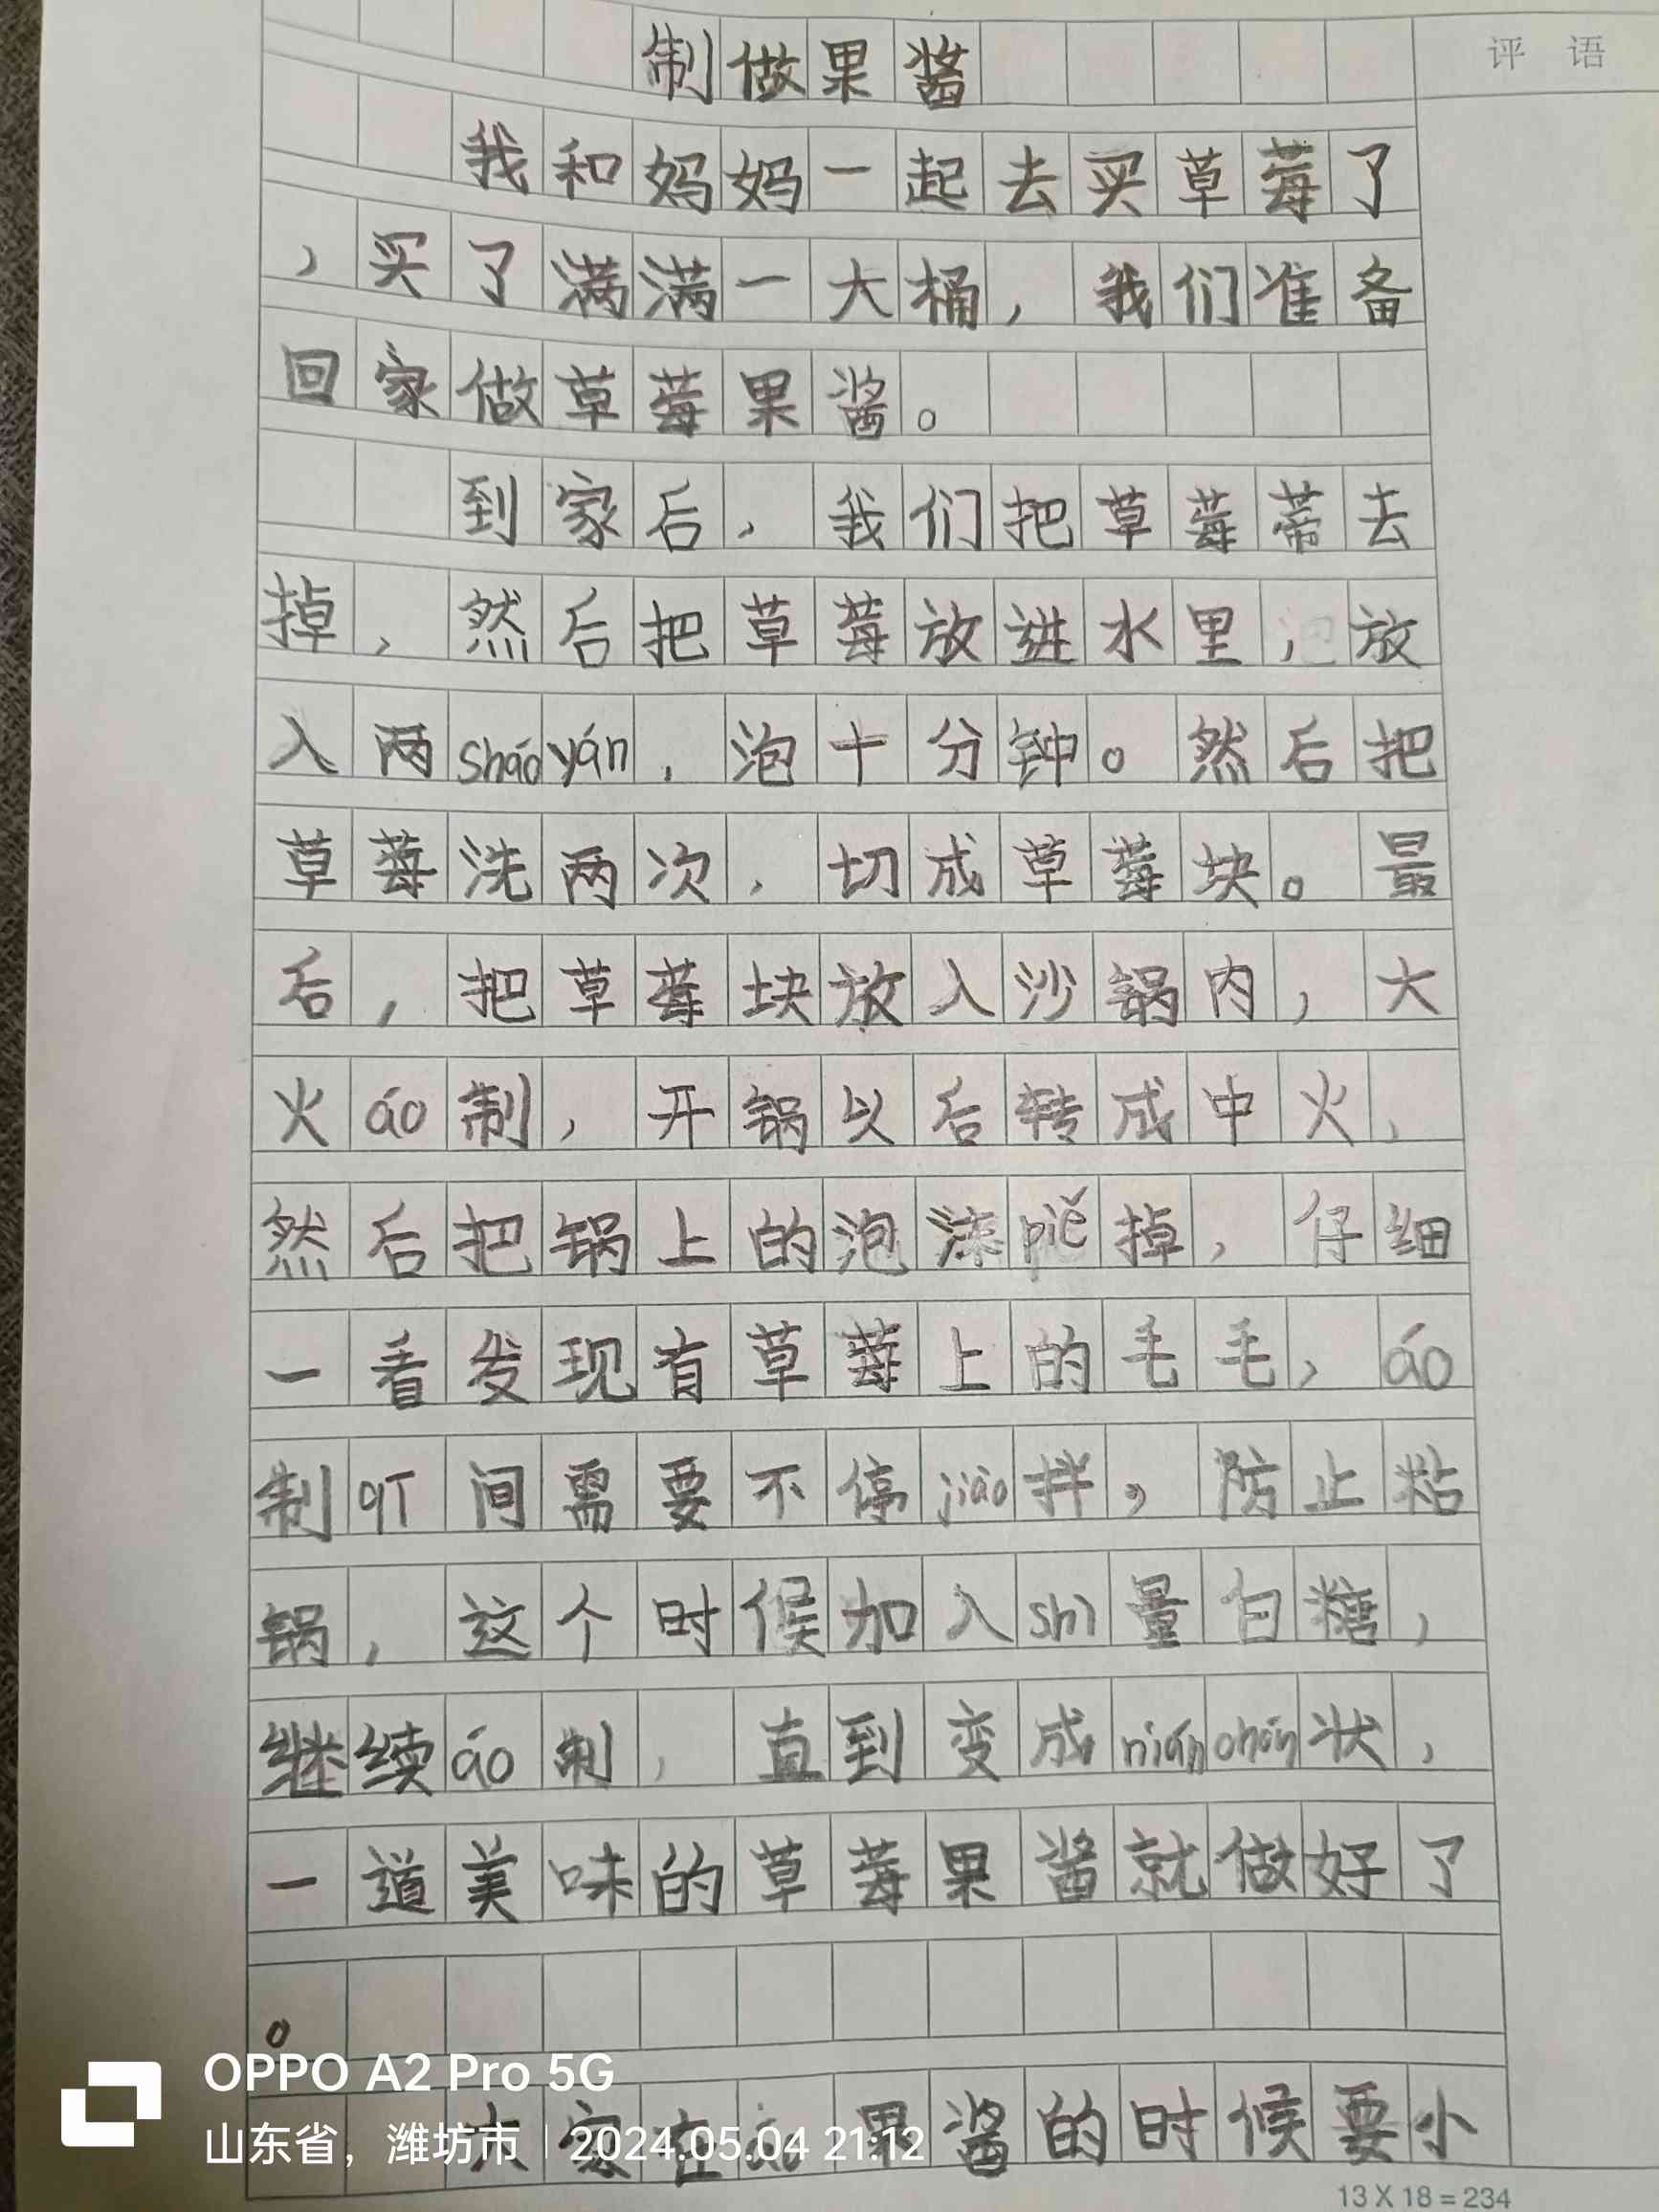 制做果酱
评 语
我和妈妈一起去买草莓了
，买了满满一大桶，我们准备
回家做草莓果酱。
到家后，我们把草莓蒂去
掉，然后把草莓放进水里，放
入两sháoyán，泡十分钟。然后把
草莓洗两次，切成草莓块。最
后，把草莓块放入沙锅内，大
火áo制，开锅以后转成中火，
然后把锅上的泡沫piě掉，仔细
一看发现有草莓上的毛毛，áo
制 间需要不停jiǎo拌，防止粘
锅，这个时候加入shì量白糖，
继续áo制，直到变成nián 状，
一道美味的草莓果酱就做好了
。
大家在áo果酱的时候要小
OPPO A2 Pro 5G
山东省，潍坊市 | 2024.05.04 21:12
13 X 18 = 234